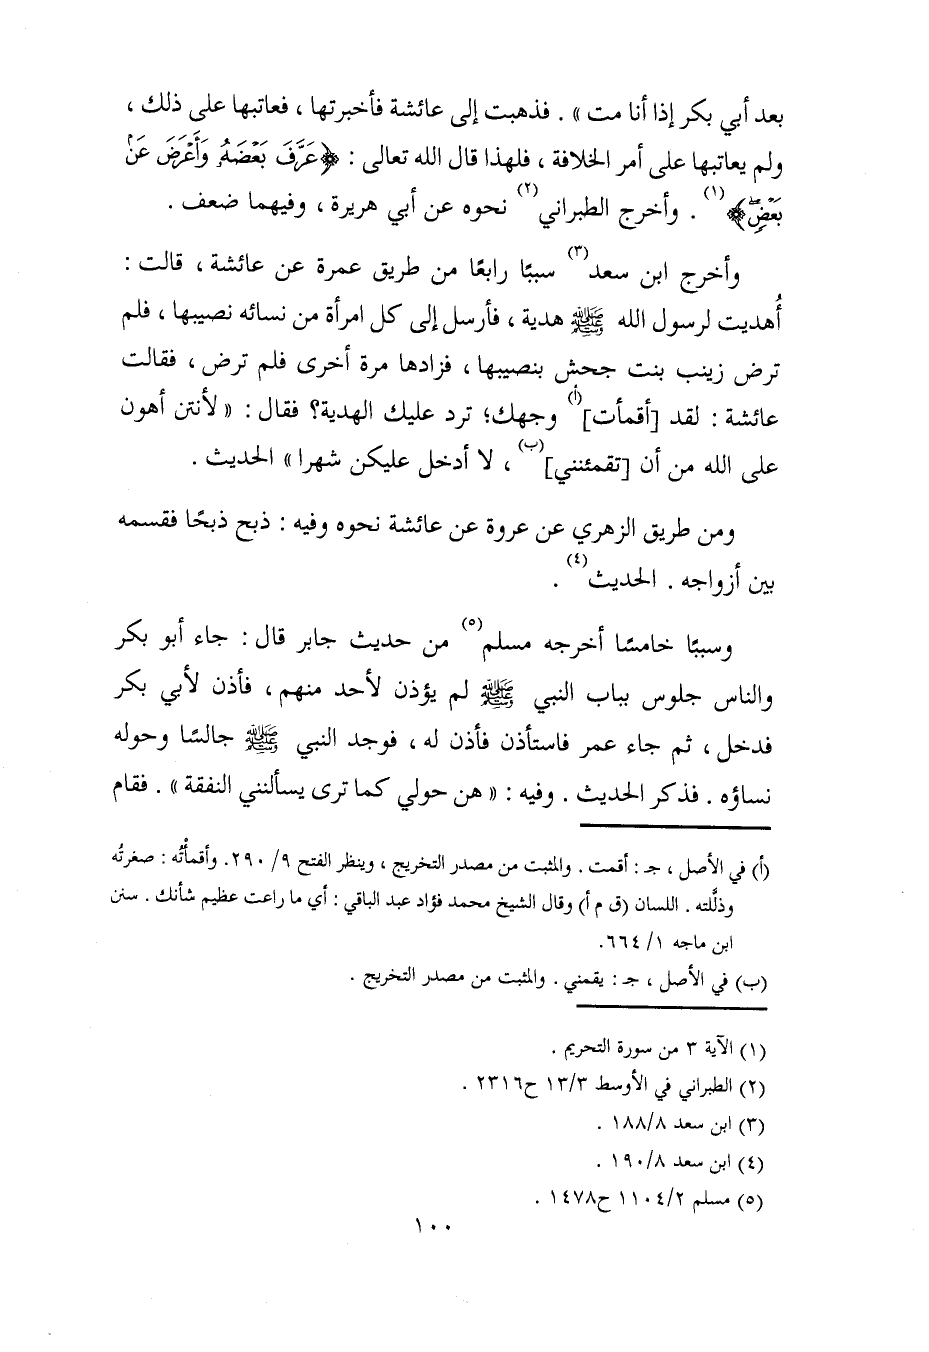 بعد أبي بكر إذا أنا مت » . فذهبت إلى عائشة فأخبرتها ، فعاتبها على ذلك ،
ولم يعاتبها على أمر الخلافة ، فلهذا قال الله تعالى : ﴿عَرَّفَ بَعْضَهُۥ وَأَعْرَضَ عَنۢ
بَعْضٍۖ﴾(١) . وأخرج الطبراني(٢) نحوه عن أبي هريرة ، وفيهما ضعف .
وأخرج ابن سعد(٣) سببًا رابعًا من طريق عمرة عن عائشة ، قالت :
أُهديت لرسول الله ﷺ هدية ، فأرسل إلى كل امرأة من نسائه نصيبها ، فلم
ترض زينب بنت جحش بنصيبها ، فزادها مرة أخرى فلم ترض ، فقالت
عائشة : لقد [أقمأت](أ) وجهك؛ ترد عليك الهدية؟ فقال : « لأنتن أهون
على الله من أن [تقمئنني](ب) ، لا أدخل عليكن شهرا » الحديث .
ومن طريق الزهري عن عروة عن عائشة نحوه وفيه : ذبح ذبحًا فقسمه
بين أزواجه . الحديث(٤) .
وسببًا خامسًا أخرجه مسلم(٥) من حديث جابر قال : جاء أبو بكر
والناس جلوس بباب النبي ﷺ لم يؤذن لأحد منهم ، فأذن لأبي بكر
فدخل ، ثم جاء عمر فاستأذن فأذن له ، فوجد النبي ﷺ جالسًا وحوله
نساؤه . فذكر الحديث . وفيه : « هن حولي كما ترى يسألنني النفقة » . فقام
(أ) في الأصل ، جـ : أقمت . والمثبت من مصدر التخريج ، وينظر الفتح ٩/ ٢٩٠. وأقمأْتُه : صغرتُه
وذلَّلته . اللسان (ق م أ) وقال الشيخ محمد فؤاد عبد الباقي : أي ما راعت عظيم شأنك . سنن
ابن ماجه ١/ ٦٦٤.
(ب) في الأصل ، جـ : يقمني . والمثبت من مصدر التخريج .
(١) الآية ٣ من سورة التحريم .
(٢) الطبراني في الأوسط ١٣/٣ ح٢٣١٦ .
(٣) ابن سعد ١٨٨/٨ .
(٤) ابن سعد ١٩٠/٨ .
(٥) مسلم ١١٠٤/٢ ح١٤٧٨ .
١٠٠